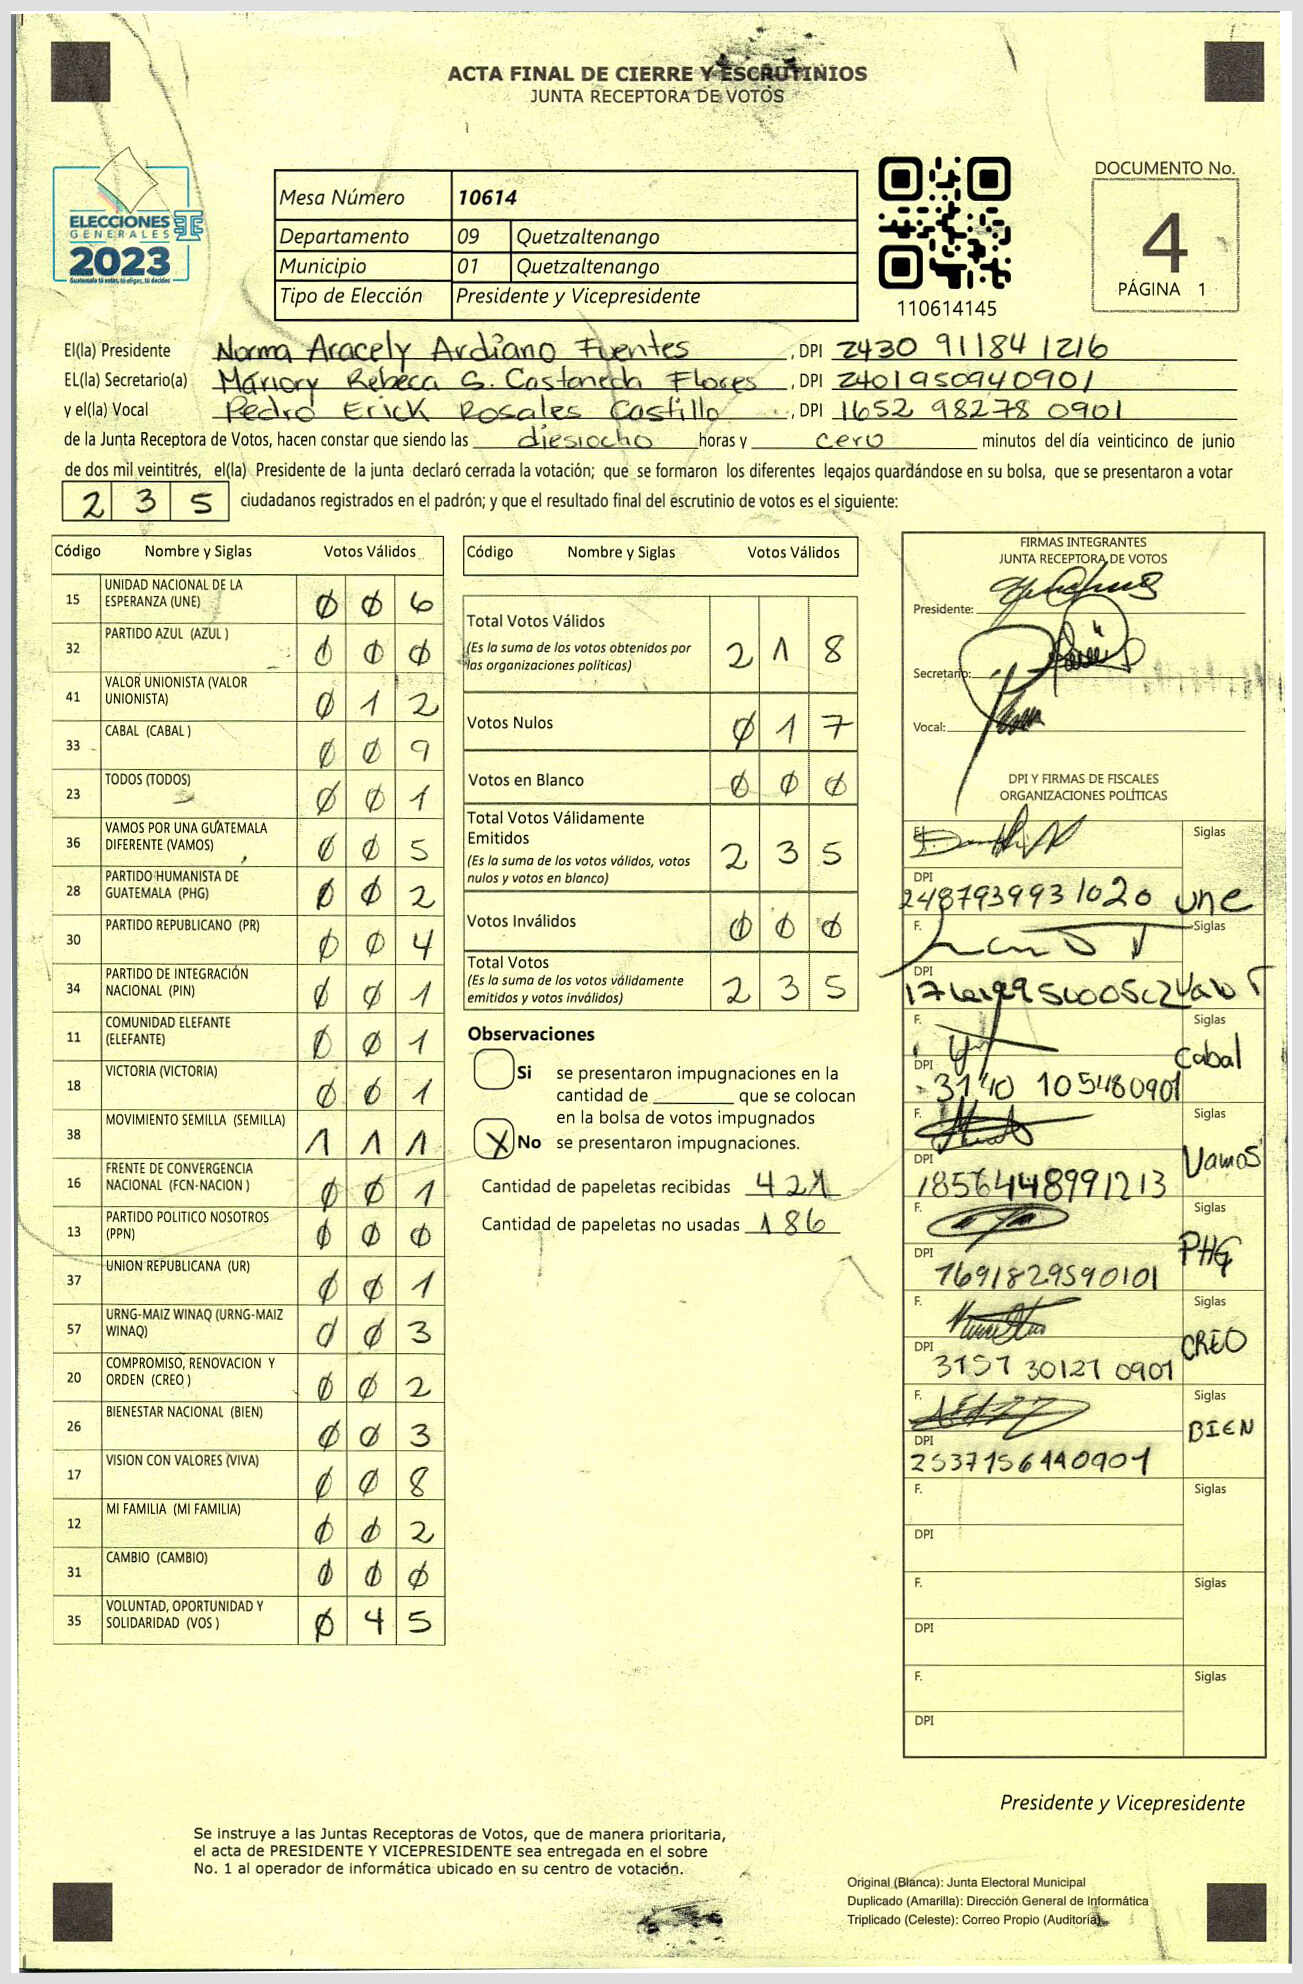 ACTA FINAL DE CIERRE Y ESCRUTINIOS
JUNTA RECEPTORA DE VOTOS
ELECCIONES
GENERALES
2023
Guatemala tú votas, tú eliges, tú decides
Mesa Número 10614
Departamento 09 Quetzaltenango
Municipio 01 Quetzaltenango
Tipo de Elección Presidente y Vicepresidente
110614145
DOCUMENTO No.
4
PÁGINA 1
El(la) Presidente Norma Aracely Ardiano Fuentes, DPI 2430 91184 1216
EL(la) Secretario(a) Mariory Rebeca G. Castaneda Flores, DPI 2401950940901
y el(la) Vocal Pedro Erick Rosales Castillo, DPI 1652 98278 0901
de la Junta Receptora de Votos, hacen constar que siendo las diesiocho horas y cero minutos del día veinticinco de junio
de dos mil veintitrés, el(la) Presidente de la junta declaró cerrada la votación; que se formaron los diferentes legajos guardándose en su bolsa, que se presentaron a votar
2 3 5 ciudadanos registrados en el padrón; y que el resultado final del escrutinio de votos es el siguiente:
Código Nombre y Siglas Votos Válidos
15 UNIDAD NACIONAL DE LA ESPERANZA (UNE) 0 0 6
32 PARTIDO AZUL (AZUL ) 0 0 0
41 VALOR UNIONISTA (VALOR UNIONISTA) 0 1 2
33 CABAL (CABAL ) 0 0 9
23 TODOS (TODOS) 0 0 1
36 VAMOS POR UNA GUATEMALA DIFERENTE (VAMOS) 0 0 5
28 PARTIDO HUMANISTA DE GUATEMALA (PHG) 0 0 2
30 PARTIDO REPUBLICANO (PR) 0 0 4
34 PARTIDO DE INTEGRACIÓN NACIONAL (PIN) 0 0 1
11 COMUNIDAD ELEFANTE (ELEFANTE) 0 0 1
18 VICTORIA (VICTORIA) 0 0 1
38 MOVIMIENTO SEMILLA (SEMILLA) 1 1 1
16 FRENTE DE CONVERGENCIA NACIONAL (FCN-NACION ) 0 0 1
13 PARTIDO POLITICO NOSOTROS (PPN) 0 0 0
37 UNION REPUBLICANA (UR) 0 0 1
57 URNG-MAIZ WINAQ (URNG-MAIZ WINAQ) 0 0 3
20 COMPROMISO, RENOVACION Y ORDEN (CREO ) 0 0 2
26 BIENESTAR NACIONAL (BIEN) 0 0 3
17 VISION CON VALORES (VIVA) 0 0 8
12 MI FAMILIA (MI FAMILIA) 0 0 2
31 CAMBIO (CAMBIO) 0 0 0
35 VOLUNTAD, OPORTUNIDAD Y SOLIDARIDAD (VOS ) 0 4 5
Código Nombre y Siglas Votos Válidos
Total Votos Válidos 2 1 8
(Es la suma de los votos obtenidos por
las organizaciones políticas)
Votos Nulos 0 1 7
Votos en Blanco 0 0 0
Total Votos Válidamente
Emitidos 2 3 5
(Es la suma de los votos válidos, votos
nulos y votos en blanco)
Votos Inválidos 0 0 0
Total Votos 2 3 5
(Es la suma de los votos válidamente
emitidos y votos inválidos)
Observaciones
Si se presentaron impugnaciones en la
cantidad de ________ que se colocan
en la bolsa de votos impugnados
X No se presentaron impugnaciones.
Cantidad de papeletas recibidas 421
Cantidad de papeletas no usadas 186
FIRMAS INTEGRANTES
JUNTA RECEPTORA DE VOTOS
Presidente:
Secretario:
Vocal:
DPI Y FIRMAS DE FISCALES
ORGANIZACIONES POLÍTICAS
F. Siglas
DPI
2487939931020 une
F. Siglas
DPI
Valor
F. Siglas
Cabal
DPI
3140 105480901
F. Siglas
Vamos
DPI
1856448991213
F. Siglas
PHG
DPI
1691829590101
F. Siglas
CREO
DPI
3157 30127 0901
F. Siglas
BIEN
DPI
2537156440901
F. Siglas
DPI
F. Siglas
DPI
F. Siglas
DPI
Presidente y Vicepresidente
Se instruye a las Juntas Receptoras de Votos, que de manera prioritaria,
el acta de PRESIDENTE Y VICEPRESIDENTE sea entregada en el sobre
No. 1 al operador de informática ubicado en su centro de votación.
Original (Blanca): Junta Electoral Municipal
Duplicado (Amarilla): Dirección General de Informática
Triplicado (Celeste): Correo Propio (Auditoría)